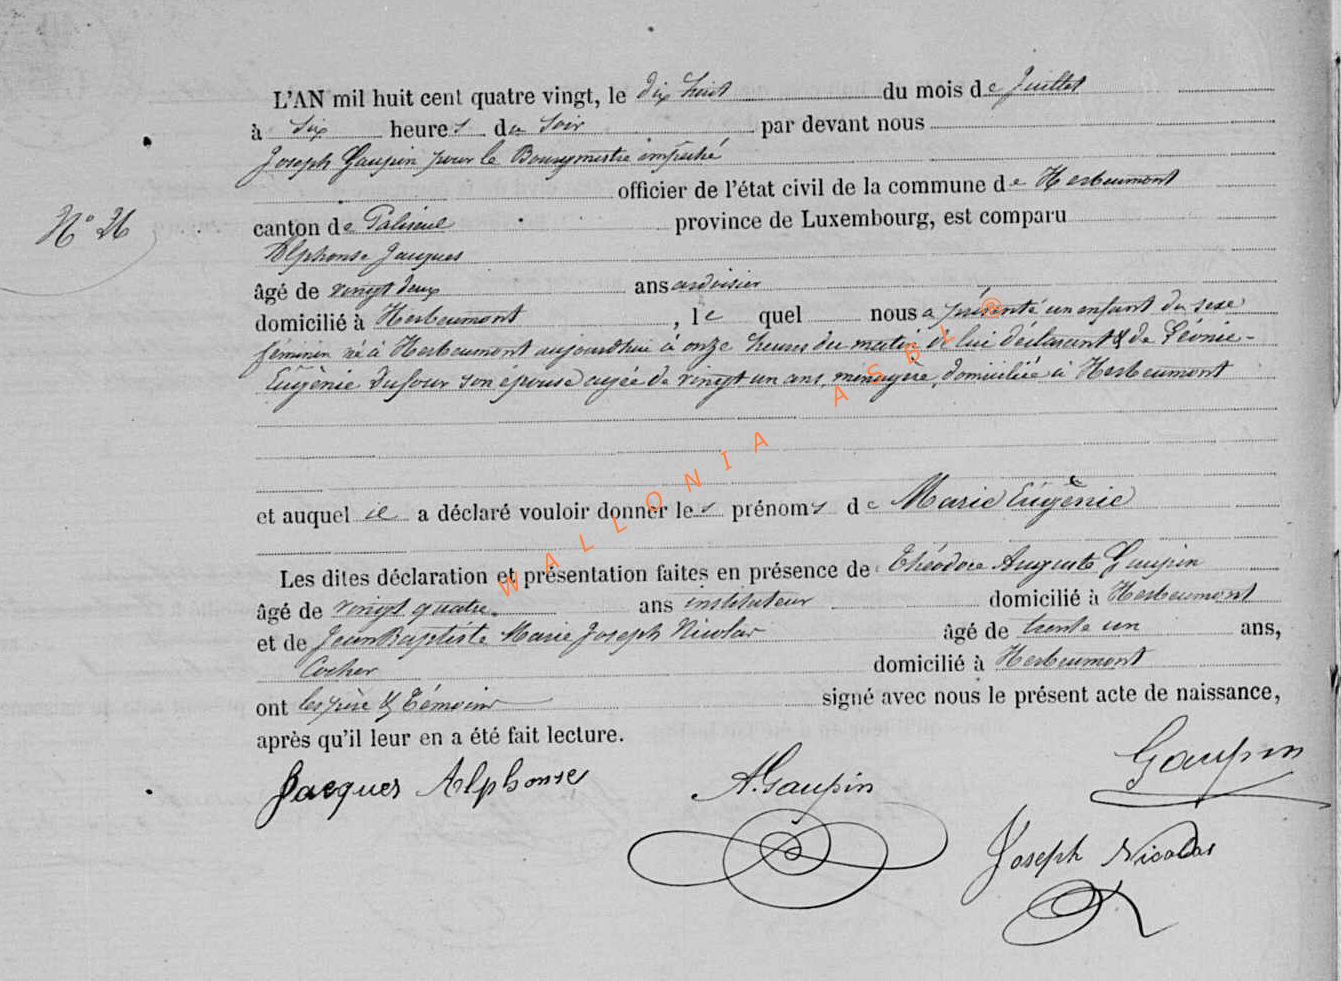 L'AN mil huit cent quatre vingt, le dix huit du mois de Juillet
à six heures du soir par devant nous
Joseph Gaupin pour le Bourgmestre empêché
officier de l'état civil de la commune de Herbeumont
N° 26
canton de Paliseul province de Luxembourg, est comparu
Alphonse Jacques
âgé de vingt deux ans ardoisier
domicilié à Herbeumont, le quel nous a présenté un enfant du sexe
féminin né à Herbeumont aujourdhui à onze heures du matin de lui déclarant & de Léonie-
Eugènie Dufour son épouse agée de vingt un ans, menagère, domiciliée à Herbeumont
et auquel il a déclaré vouloir donner les prénoms de Marie Eugènie
Les dites déclaration et présentation faites en présence de Théodore Auguste Gaupin
âgé de vingt quatre. ans instituteur domicilié à Herbeumont
et de Jean Baptiste Marie Joseph Nicolas âgé de trente un ans,
Cocher domicilié à Herbeumont
ont les père & témoins signé avec nous le présent acte de naissance,
après qu'il leur en a été fait lecture.
Jacques Alphonse A. Gaupin Gaupin
Joseph Nicolas
WALLONIA ASBL ®